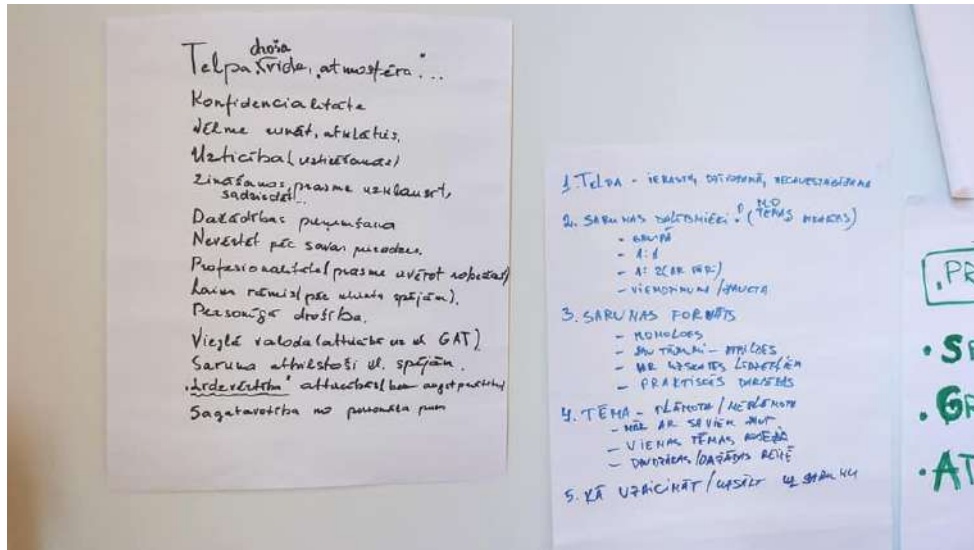 droša
Telpa, vide, atmosfēra...
Konfidencialitāte
vēlme runāt, atklātus.
Uzticība (uzticēšanās)
Zināšanas, prasme uzklausīt,
sadzirdēt...
Dažādības pieņemšana
Nevērtēt pēc savas pieredzes.
Profesionalitāte (prasme ievērot robežas)
Laika rāmis (pēc klienta spējām).
Personīgā drošība.
Vieglā valoda (attiecībā uz kl GAT)
Saruna atbilstoši kl. spējām.
"Līdzvērtība" attiecībās (bez augstprātības)
Sagatavotība no personāla puses
1. TELPA - IERASTA, DZĪVOJAMĀ,
2. SARUNAS DALĪBNIEKI ? (NO TĒMAS
- GRUPĀ
- 1:1
- 1:2 (AR
- VIENDZIMUMA / JAUKTA
3. SARUNAS FORMĀTS
- MONOLOGS
- JAUTĀJUMI - ATBILDES
- AR UZSKATES LĪDZEKĻIEM
- PRAKTISKĀS DARBĪBAS
4. TĒMA - PLĀNOTA / NEPLĀNOTA
- NĀK AR SAVIEM
- VIENAS TĒMAS
- DAUDZĀKAS / DAŽĀDAS REIZĒ
5. KĀ UZAICINĀT / UZSĀKT SARUNU
PR
• SE
• GR
• AT